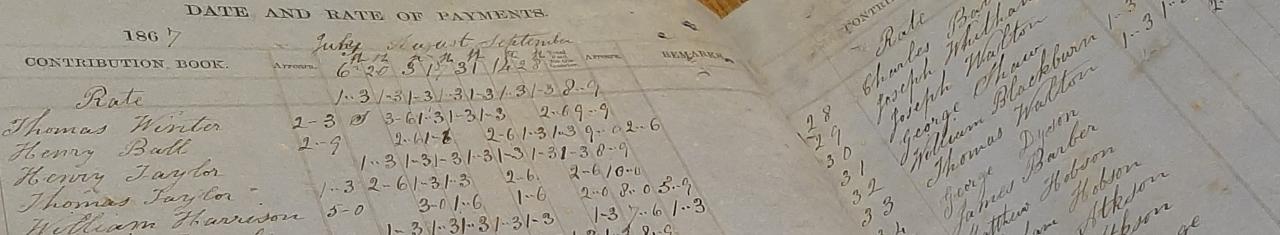 DATE AND RATE OF PAYMENTS.
1867 July August September
CONTRIBUTION BOOK. Arrears. 6 20 3 17 31 14 28 Arrears. REMARKS.
Rate 1..3 1-3 1-3 1-3 1-3 1-3 1-3 8-9
Thomas Winter 2-3 3-6 1-3 1-3 1-3 2-6 9-9
Henry Ball 2-9 2-6 2-6 1-3 1-3 9-0 2-6
Henry Taylor 1..3 1-3 1-3 1-3 1-3 1-3 1-3 8-9
Thomas Taylor 1..3 2-6 1-3 1-3 2-6 2-6 10-0
William Harrison 5-0 3-0 1..6 1-6 2-0 8-0 5-9
1-3 1-3 1-3 1-3 1-3 1-3 7-6 1-3
Rate
Charles
28 Joseph
29 Joseph Walton
30 George Shaw
31 William Blackburn
32 Thomas Walton
33 George Dyson
James Barber
Hobson
Hobson
Atkson